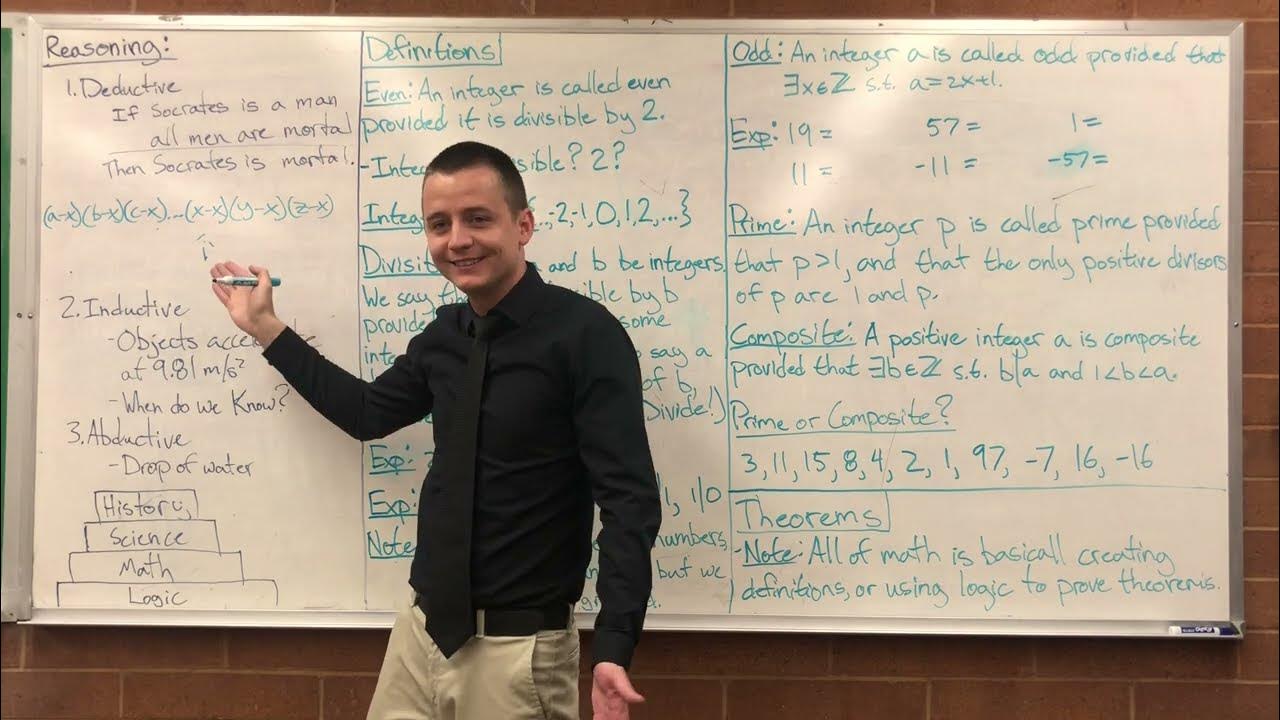 Reasoning:
1. Deductive
If Socrates is a man
all men are mortal
Then Socrates is mortal.
(a-x)(b-x)(c-x)...(x-x)(y-x)(z-x)
2. Inductive
-Objects
at 9.81 m/s²
-When do we Know?
3. Abductive
-Drop of water
History
Science
Math
Logic
Definitions
Even: An integer is called even
provided it is divisible by 2.
? 2?
-2,-1,0,1,2,...}
and b be integers
We say by b
some
say a
of b,
Divide!)
Exp:
Exp: 1|0
Note numbers,
but we
Odd: An integer a is called odd provided that
∃x∈ℤ s.t. a=2x+1.
Exp: 19= 57= 1=
11= -11= -57=
Prime: An integer p is called prime provided
that p>1, and that the only positive divisors
of p are 1 and p.
Composite: A positive integer a is composite
provided that ∃b∈ℤ s.t. b|a and 1<b<a.
Prime or Composite?
3, 11, 15, 8, 4, 2, 1, 97, -7, 16, -16
Theorems
-Note: All of math is basicall creating
definitions, or using logic to prove theorems.